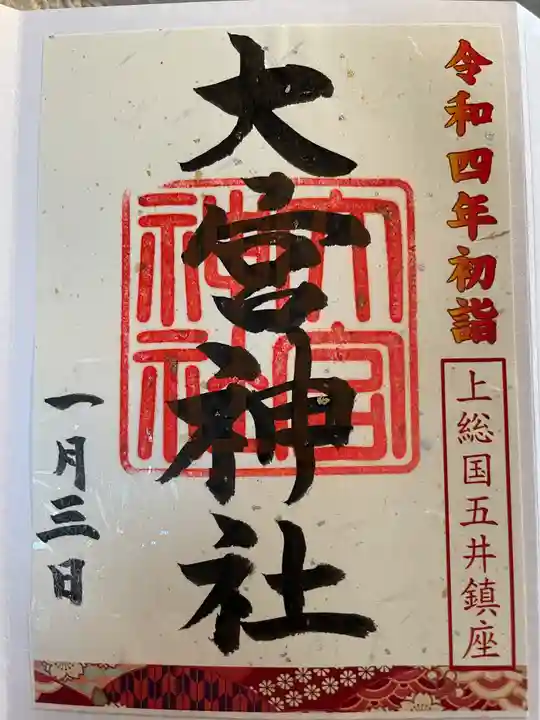 令和四年初詣
上総国五井鎮座
大宮神社
大宮
神社
一月三日